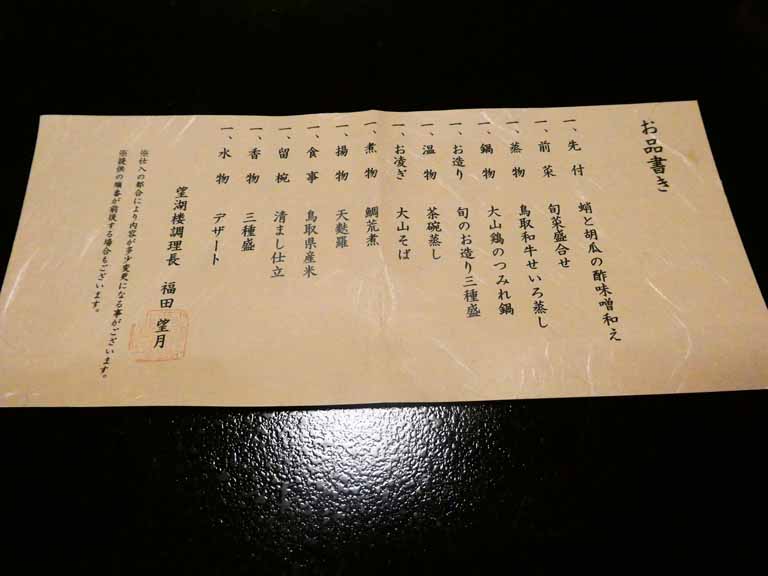 お品書き
一、先付 蛸と胡瓜の酢味噌和え
一、前菜 旬菜盛合せ
一、蒸物 鳥取和牛せいろ蒸し
一、鍋物 大山鶏のつみれ鍋
一、お造り 旬のお造り三種盛
一、温物 茶碗蒸し
一、お凌ぎ 大山そば
一、煮物 鯛荒煮
一、揚物 天麩羅
一、食事 鳥取県産米
一、留椀 清まし仕立
一、香物 三種盛
一、水物 デザート
望湖楼調理長 福田 望月
※仕入の都合により内容が多少変更になる事がございます。
※提供の順番が前後する場合もございます。